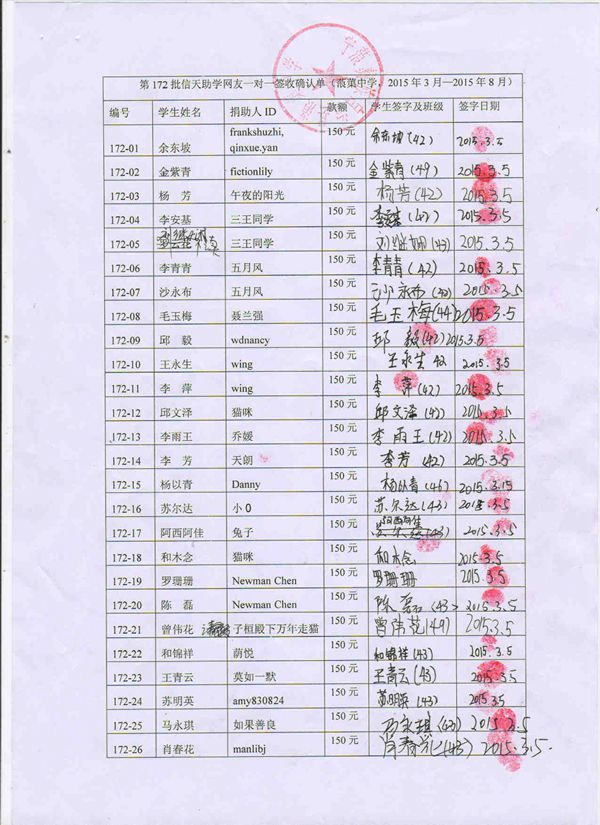 第172批信天助学网友一对一签收确认单（蒗蕖中学，2015年3月—2015年8月）
编号 学生姓名 捐助人ID 款额 学生签字及班级 签字日期
172-01 余东坡 frankshuzhi, qinxue.yan 150元 余东坡(42) 2015.3.5
172-02 金紫青 fictionlily 150元 金紫青(49) 2015.3.5
172-03 杨 芳 午夜的阳光 150元 杨芳(42) 2015.3.5
172-04 李安基 三王同学 150元 李安基(42) 2015.3.5
172-05 三王同学 150元 刘继娴(43) 2015.3.5
172-06 李青青 五月风 150元 李青青(42) 2015.3.5
172-07 沙永布 五月风 150元 沙永布(42) 2015.3.5
172-08 毛玉梅 聂兰强 150元 毛玉梅(44) 2015.3.5
172-09 邱 毅 wdnancy 150元 邱毅(42) 2015.3.5
172-10 王永生 wing 150元 王永生 42 2015.3.5
172-11 李 萍 wing 150元 李萍(42) 2015.3.5
172-12 邱文泽 猫咪 150元 邱文泽(42) 2015.3.5
172-13 李雨王 乔媛 150元 李雨王(42) 2015.3.5
172-14 李 芳 天朗 150元 李芳(42) 2015.3.5
172-15 杨以青 Danny 150元 杨以青(46) 2015.3.15
172-16 苏尔达 小O 150元 苏尔达(43) 2015.3.5
172-17 阿西阿佳 兔子 150元 阿西阿佳 (43) 2015.3.5
172-18 和木念 猫咪 150元 和木念 2015.3.5
172-19 罗珊珊 Newman Chen 150元 罗珊珊 2015.3.5
172-20 陈 磊 Newman Chen 150元 陈磊(43) 2015.3.5
172-21 曾伟花 子桓殿下万年走猫 150元 曾伟花(49) 2015.3.5
172-22 和锦祥 荫悦 150元 和锦祥(43) 2015.3.5
172-23 王青云 莫如一默 150元 王青云(43) 2015.3.5
172-24 苏明英 amy830824 150元 (43) 2015.3.5
172-25 马永琪 如果善良 150元 马永琪(43) 2015.3.5
172-26 肖春花 manlibj 150元 肖春花(43) 2015.3.5.